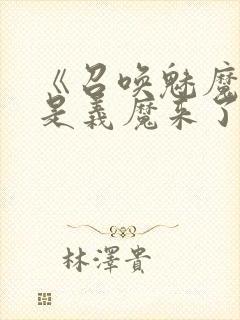 《召唤魅魔
是義魔来了
林澤貴